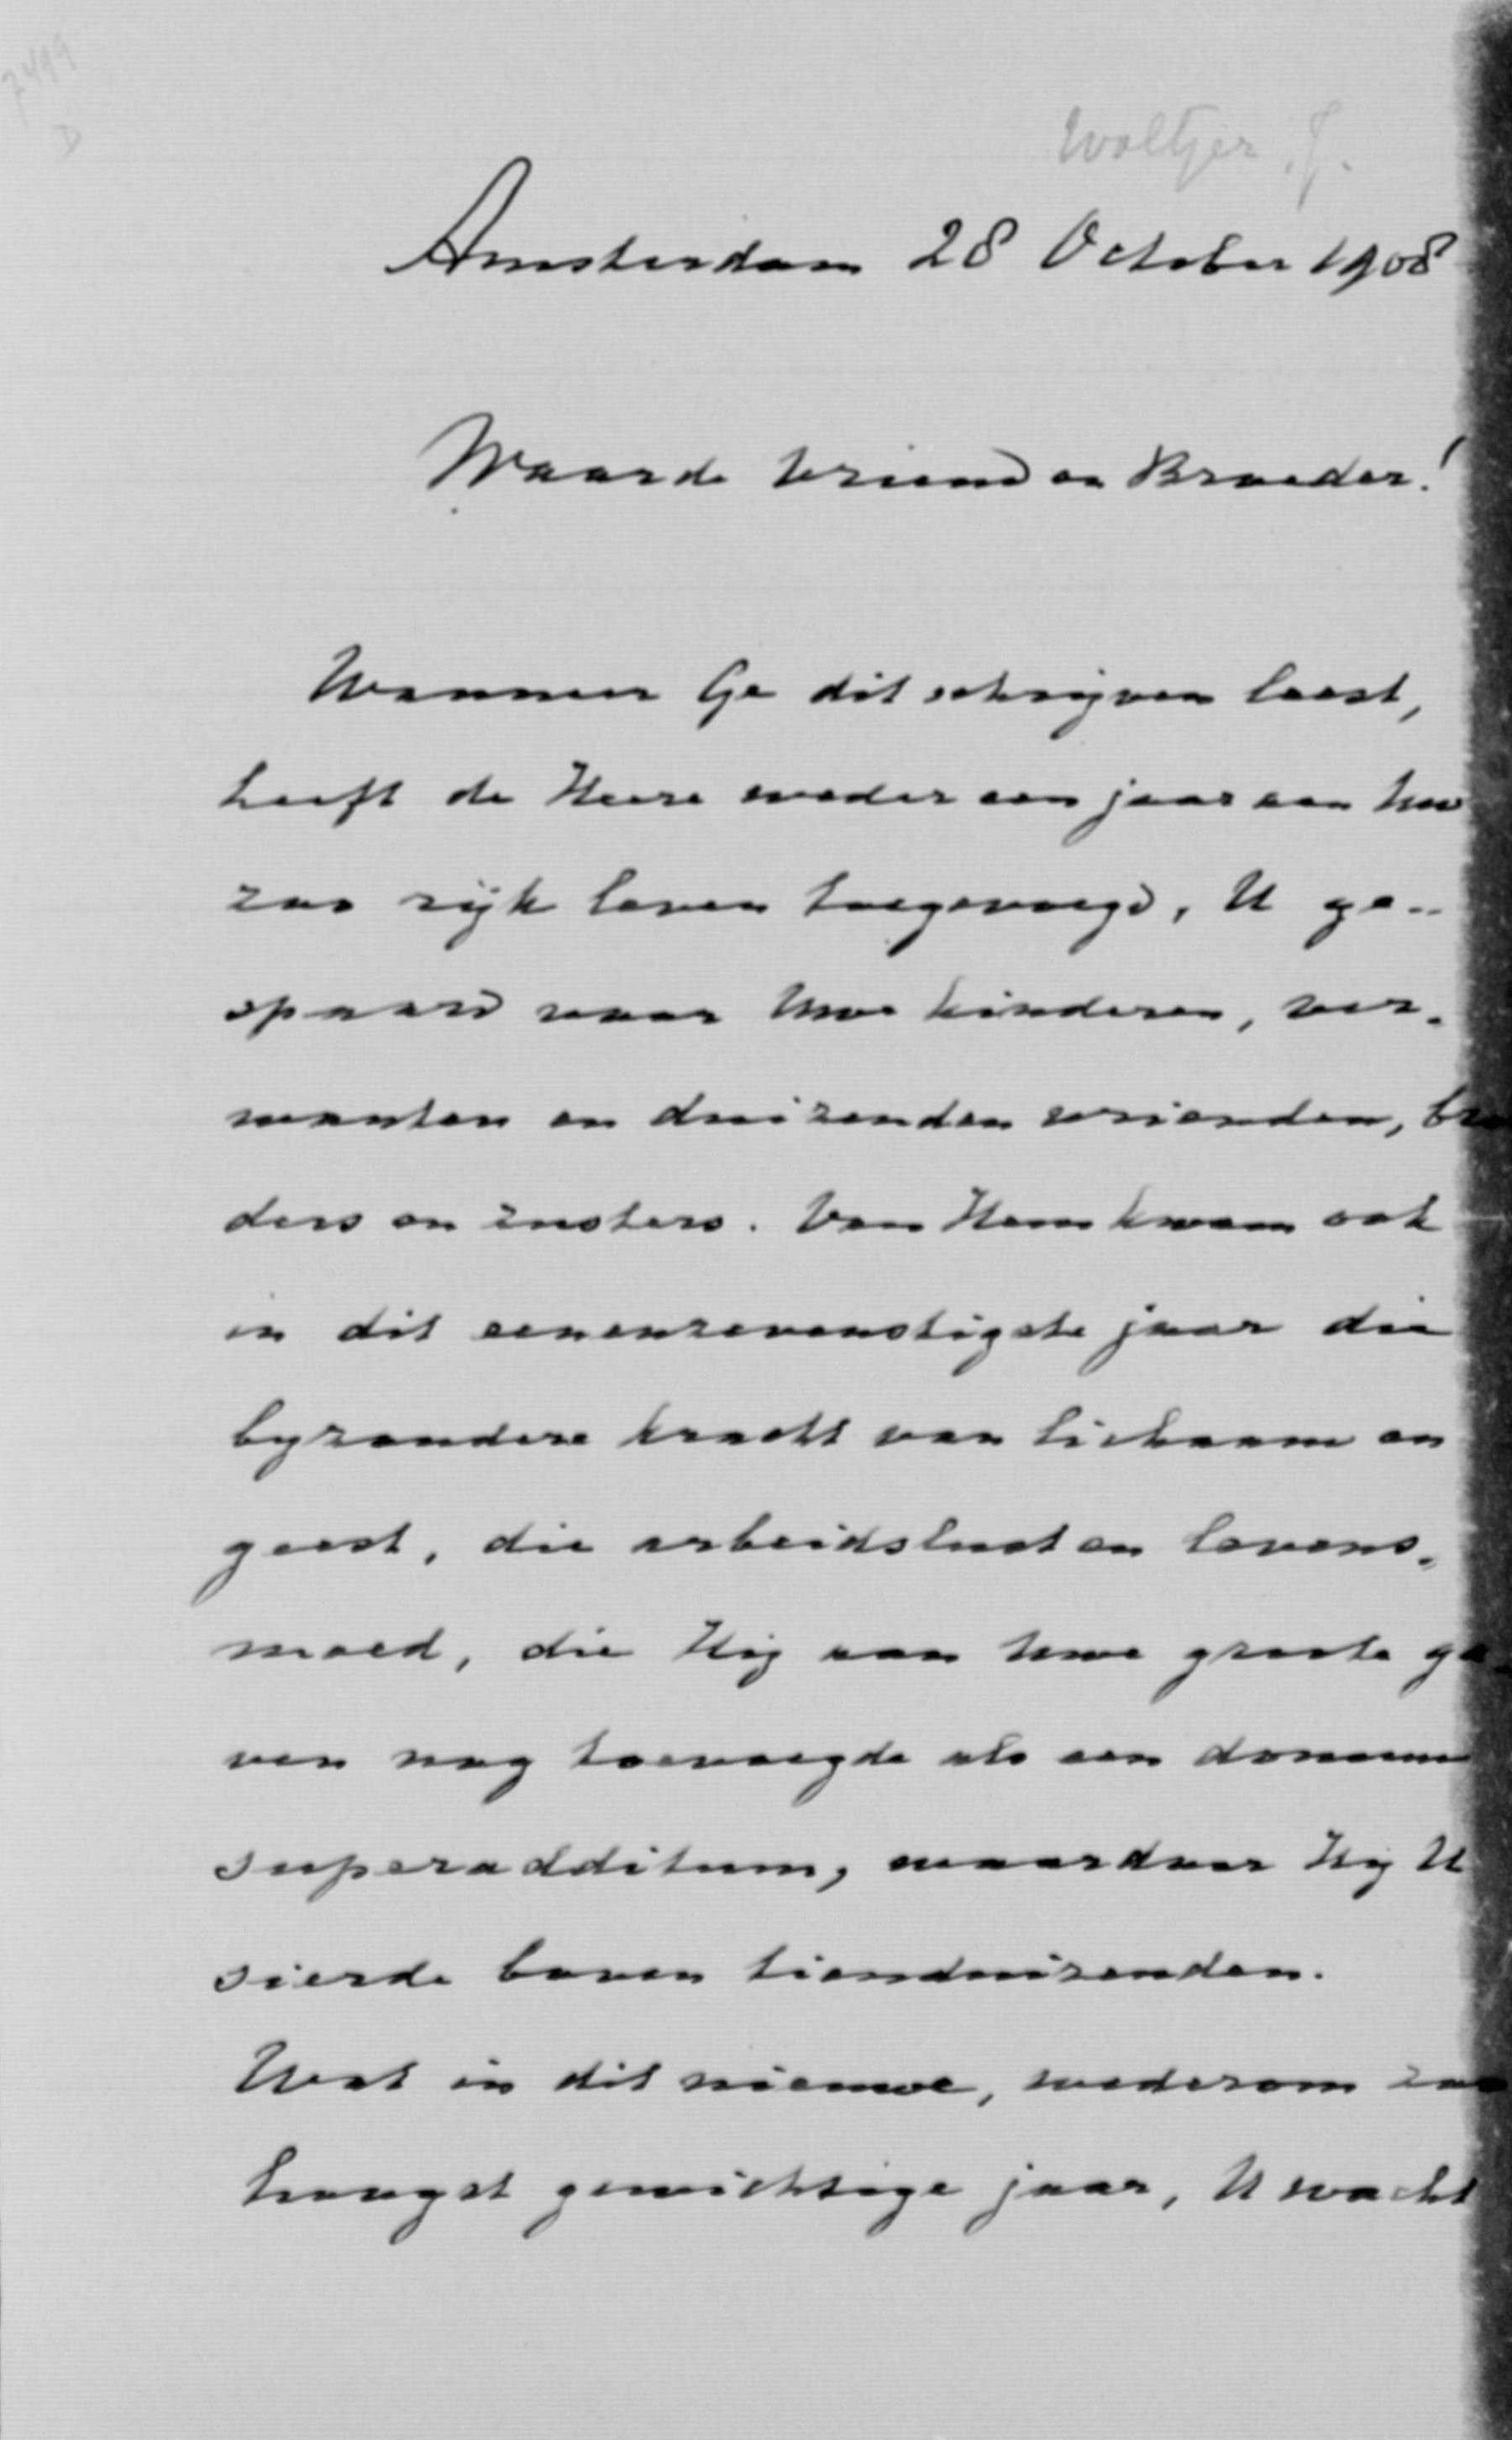 7499
D
Woltjer, J.
Amsterdam 28 October 1908
Waarde Vriend en Broeder!
Wanneer Ge dit schrijven leest,
heeft de Heere weder een jaar aan Uw
zoo rijk leven toegevoegd, U ge-
spaard voor Uwe kinderen, ver-
wanten en duizenden vrienden, broe
ders en zusters. Van Hem kwam ook
in dit eenenzeventigste jaar die
byzondere kracht van lichaam en
geest, die arbeidslust en levens-
moed, die Hij aan Uwe groote ga-
ven nog toevoegde als een donum
superadditum, waardoor Hij U
sierde boven tienduizenden.
Wat in dit nieuwe, wederom zoo
hoogst gewichtige jaar, U wacht